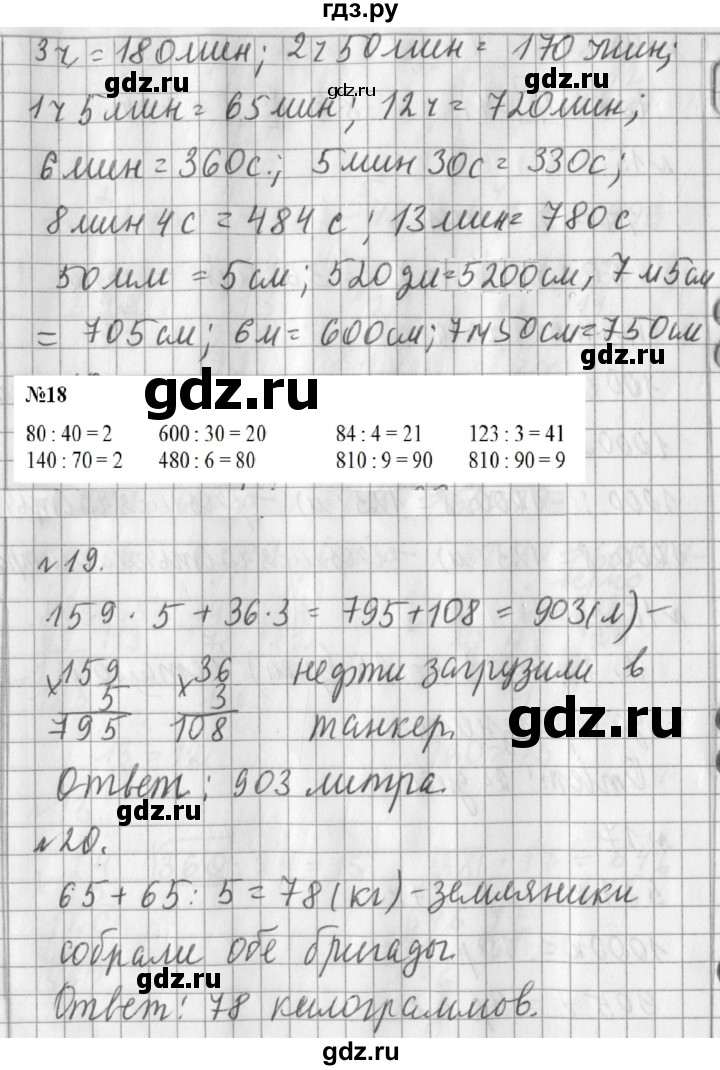 гдз.ру
3ч = 180мин; 2ч 50мин = 170 мин;
gdz.ru gdz.ru
1ч 5мин = 65мин; 12ч = 720мин;
6мин = 360с.; 5мин 30с = 330с;
8мин 4с = 484с; 13мин = 780с
gdz.ru
50мм = 5см; 520дм = 5200см, 7м5см
= 705см; 6м = 600см; 7м50см = 750см
gdz.ru
№18 gdz.ru
80 : 40 = 2 600 : 30 = 20 84 : 4 = 21 123 : 3 = 41
140 : 70 = 2 480 : 6 = 80 810 : 9 = 90 810 : 90 = 9
№19.
159 · 5 + 36 · 3 = 795 + 108 = 903(л) –
×159 ×36 нефти загрузили в
5 3
795 108 танкер.
gdz.ru
Ответ: 903 литра.
gdz.ru
№20.
65 + 65 : 5 = 78 (кг) – земляники
собрали обе бригады.
gdz.ru
Ответ: 78 килограммов.
gdz.ru